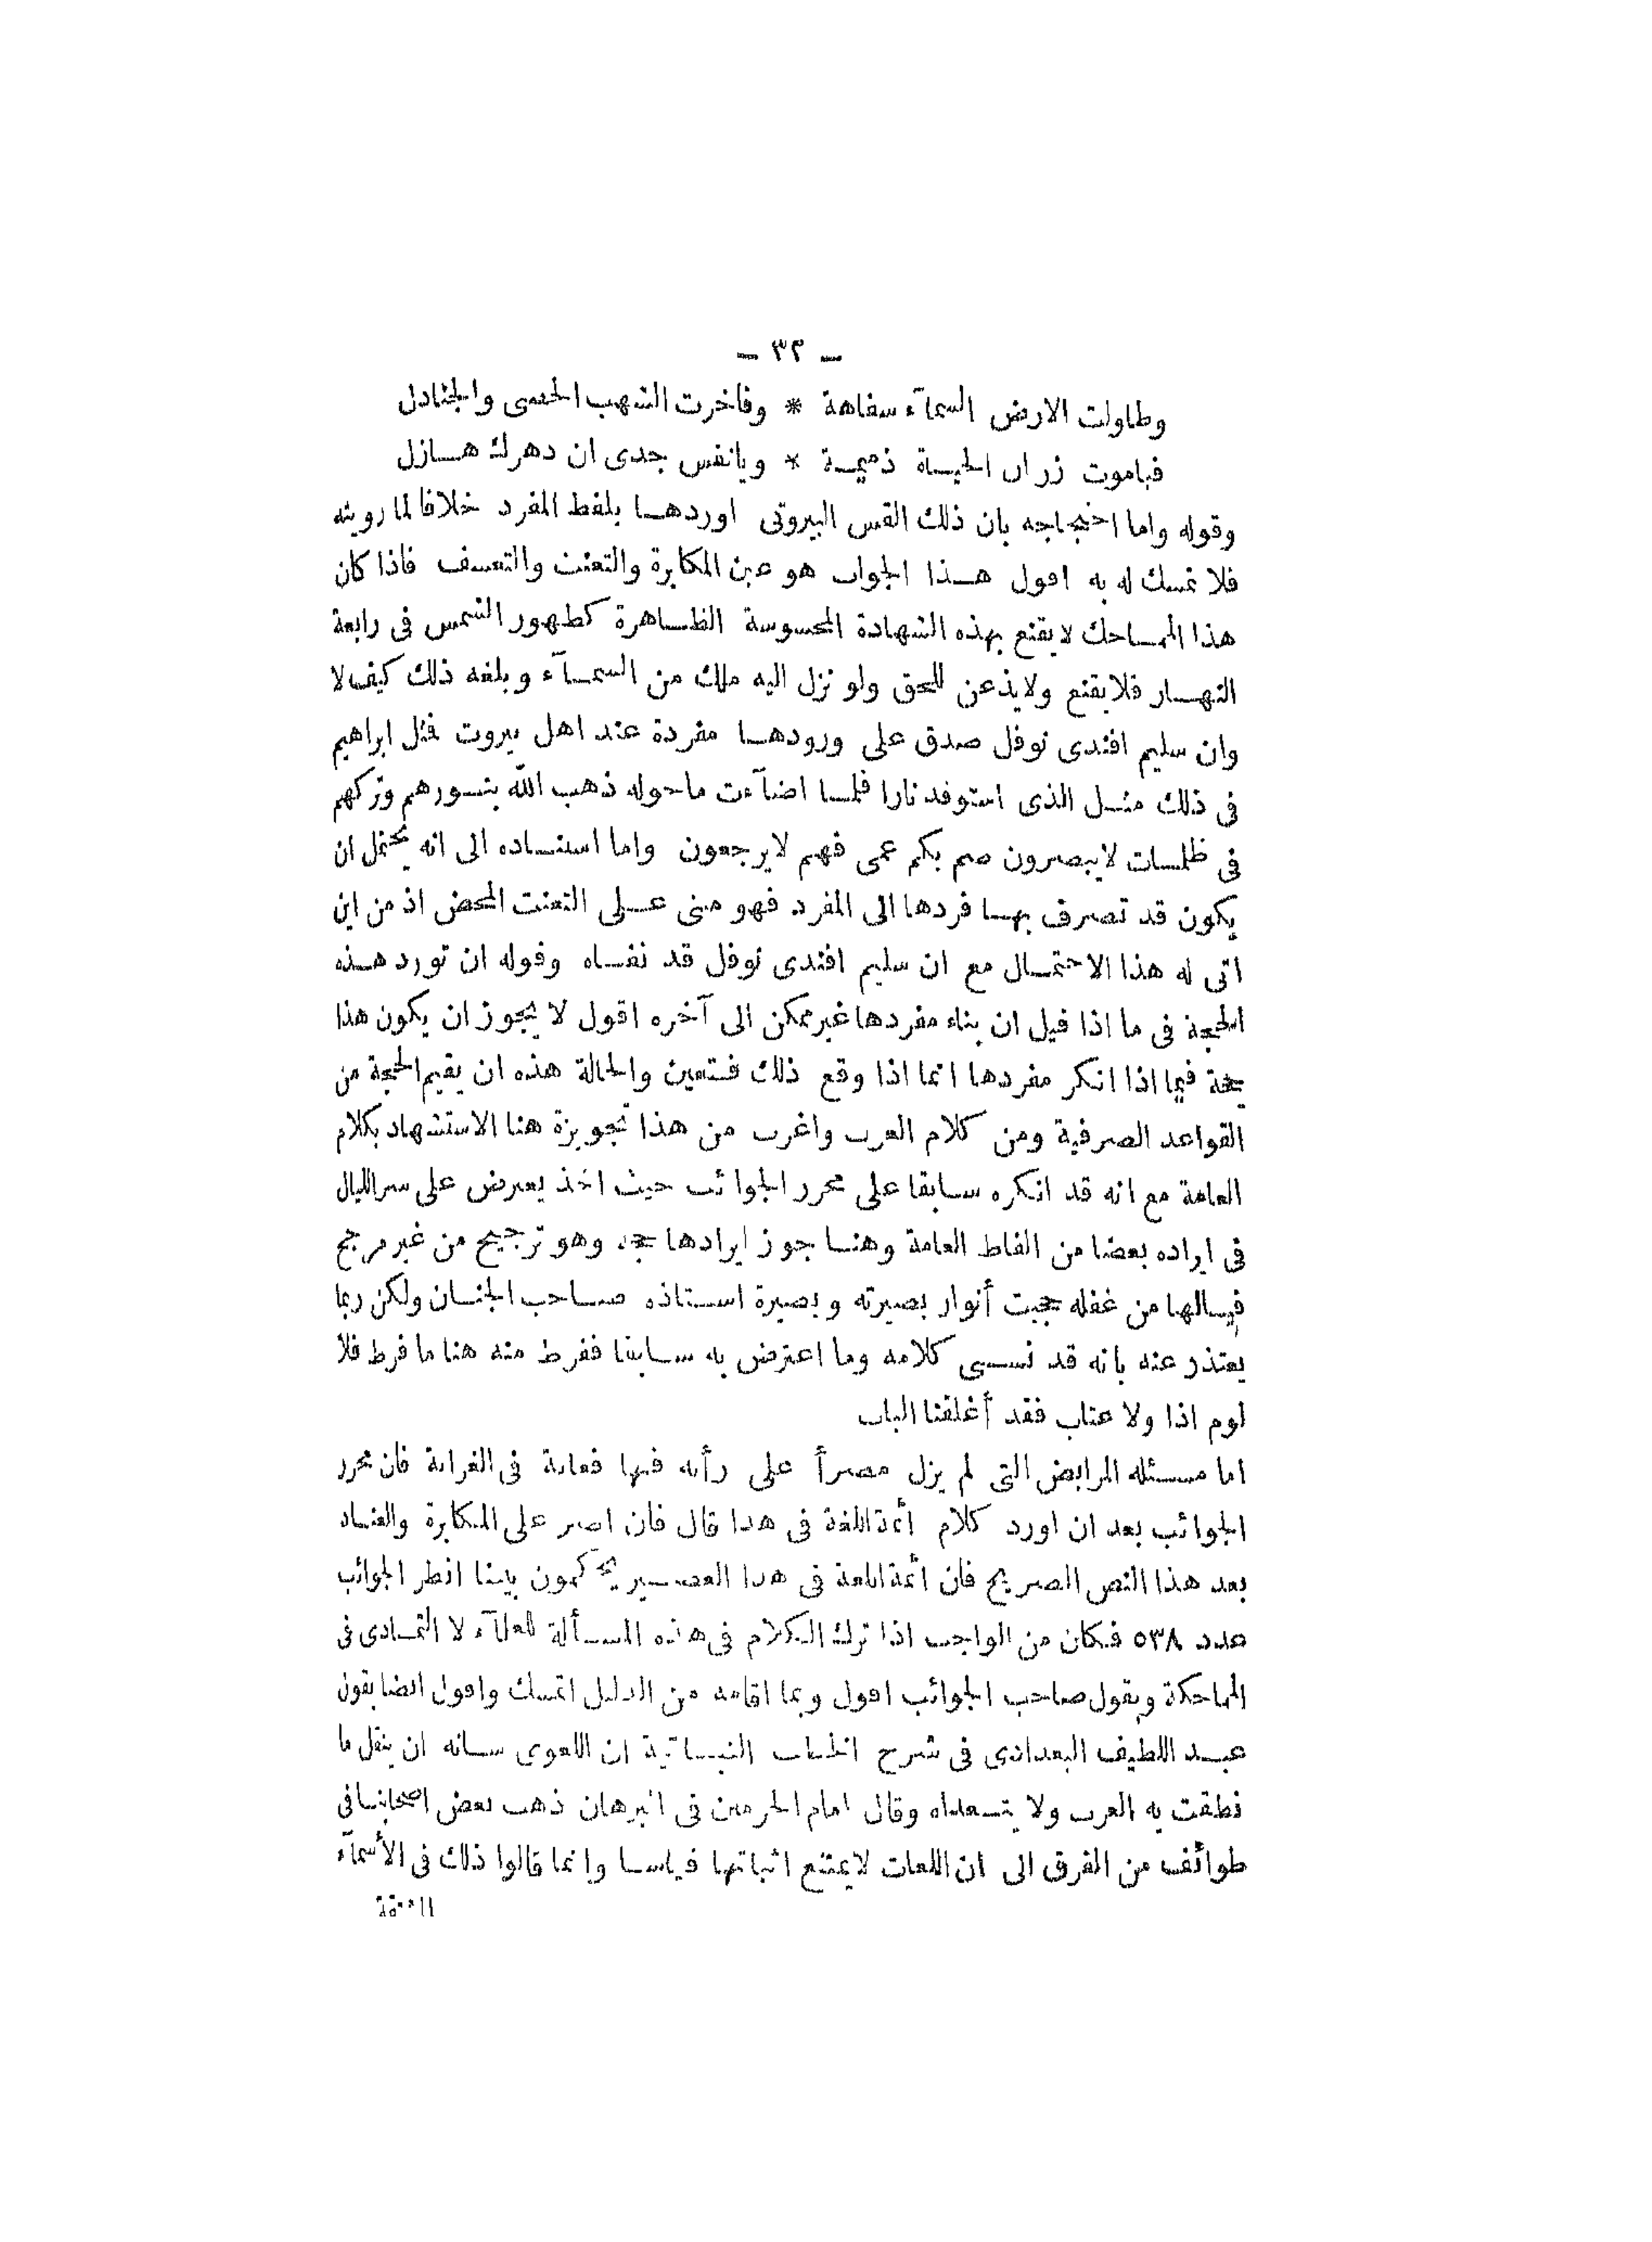 – ٣٢ –
وطاولت الارض السمآء سفاهة * وفاخرت الشهب الحصى والجنادل
فياموت زر ان الحيـاة ذميمـة * ويانفس جدى ان دهرك هـازل
وقوله واما احتجاجه بان ذلك القس البيروتى اوردهـا بلفظ المفرد خلافا لما رويته
فلا تمسك له به اقول هـذا الجواب هو عين المكابرة والتعنت والتعسف فاذا كان
هذا الممـاحك لا يقنع بهذه الشهادة المحسوسة الظـاهرة كظهور الشمس فى رابعة
النهـار فلا يقنع ولا يذعن للحق ولو نزل اليه ملك من السمـآء وبلغه ذلك كيف لا
وان سليم افندى نوفل صدق على ورودهـا مفردة عند اهل بيروت فمثل ابراهيم
فى ذلك مثـل الذى استوقد نارا فلمـا اضآءت ماحوله ذهب الله بنـورهم وتركهم
فى ظلمـات لا يبصرون صم بكم عمى فهم لا يرجعون واما استنـاده الى انه يحتمل ان
يكون قد تصرف بهـا فردها الى المفرد فهو مبنى عـلى التعنت المحض اذ من اين
اتى له هذا الاحتمـال مع ان سليم افندى نوفل قد نفـاه وقوله ان تورد هـذه
الحجة فى ما اذا قيل ان بناء مفردها غير ممكن الى آخره اقول لا يجوز ان يكون هذا
حجة فيما اذا انكر مفردها انما اذا وقع ذلك فتتعين والحالة هذه ان يقيم الحجة من
القواعد الصرفية ومن كلام العرب واغرب من هذا تجويزة هنا الاستشهاد بكلام
العامة مع انه قد انكره سـابقا على محرر الجوائب حيث اخذ يعترض على سر الليال
فى ايراده بعضا من الفاظ العامة وهنـا جوز ايرادها حجة وهو ترجيح من غير مرجح
فيـالها من غفله حجبت أنوار بصيرته وبصيرة اسـتاذه صـاحب الجنـان ولكن ربما
يعتذر عنه بانه قد نسـى كلامه وما اعترض به سـابقا ففرط منه هنا ما فرط فلا
لوم اذا ولا عتاب فقد أغلقنا الباب
اما مسـئله المرابض التى لم يزل مصراً على رأيه فيها فغاية فى الغرابة فان محرر
الجوائب بعد ان اورد كلام أئمة اللغة فى هذا قال فان اصر على المكابرة والعنـاد
بعد هذا النص الصريح فان أئمة اللغة فى هذا العصـر يحكمون بيننا انظر الجوائب
عدد ٥٣٨ فكان من الواجب اذا ترك الكلام فى هذه المسـألة للعلمآء لا التمـادى فى
المماحكة ويقول صاحب الجوائب اقول وبما اقامه من الدليل اتمسك واقول ايضا بقول
عبـد اللطيف البغدادى فى شرح الخطب النبـاتية ان اللغوى شـانه ان ينقل ما
نطقت به العرب ولا يتـعداه وقال امام الحرمين فى البرهان ذهب بعض اصحابنـا فى
طوائف من الفرق الى ان اللغات لا يمتنع اثباتها قياسـا وانما قالوا ذلك فى الأسمآء